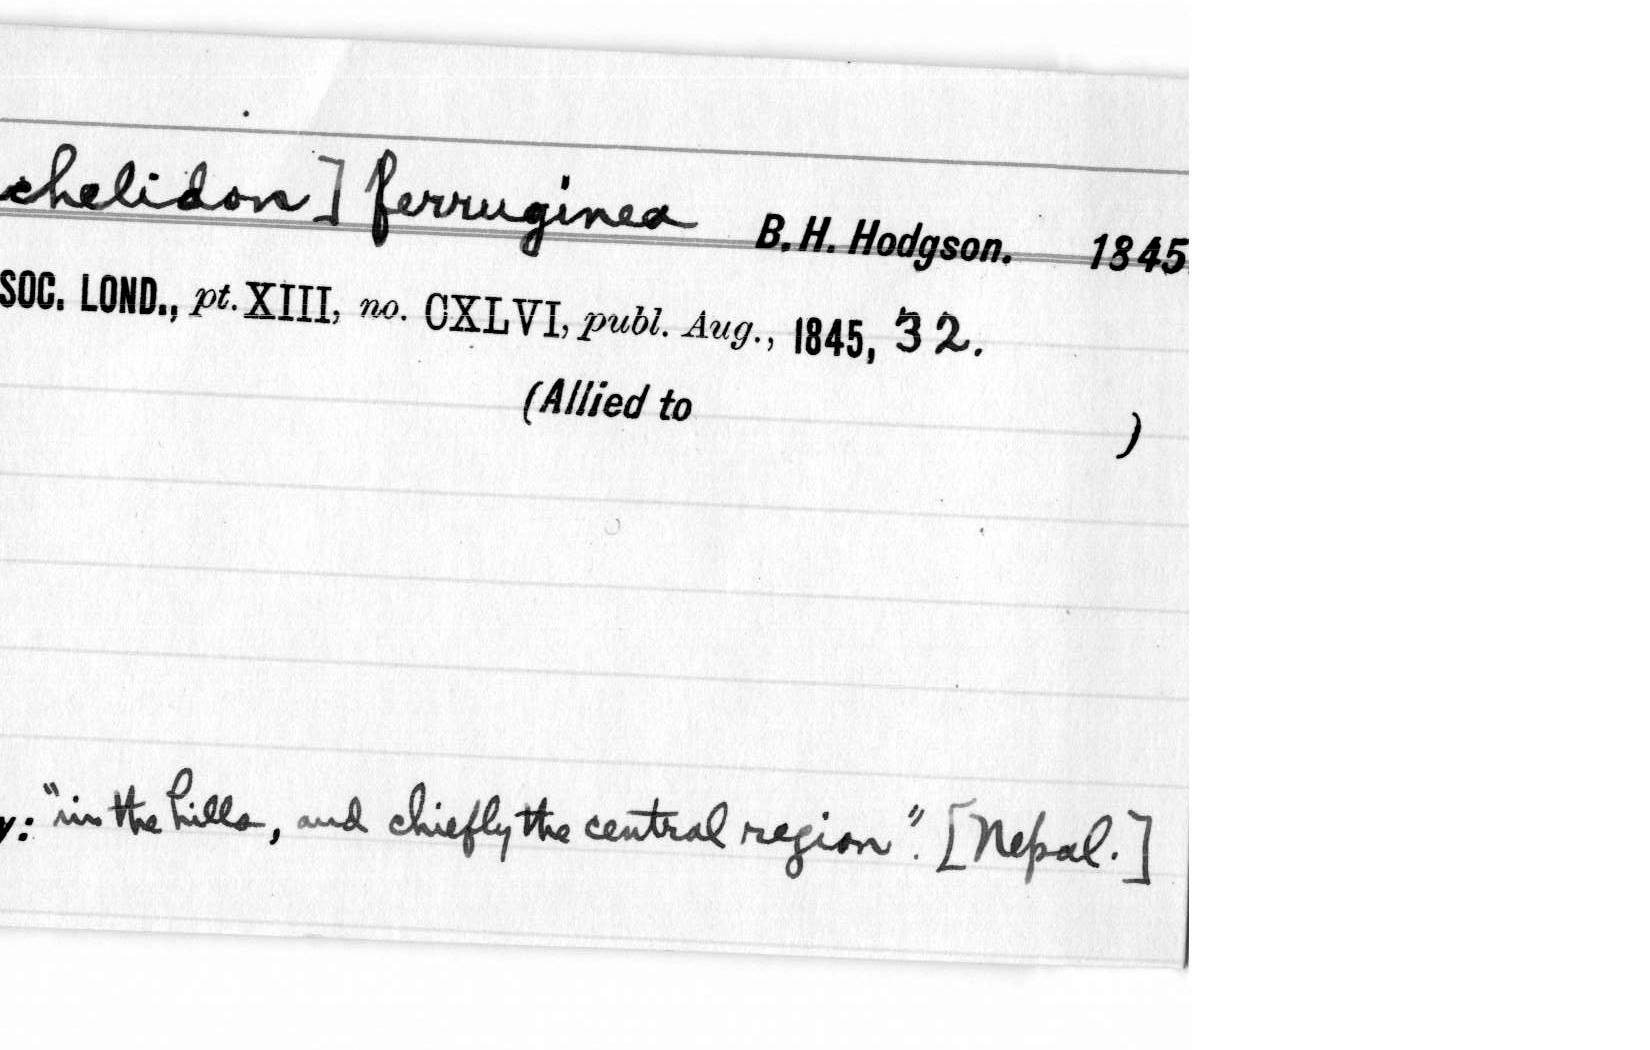 chelidon] ferruginea B. H. Hodgson. 1845
SOC. LOND., pt. XIII, no. CXLVI, publ. Aug., 1845, 32.
(Allied to )
y: "in the hills, and chiefly the central region". [Nepal.]